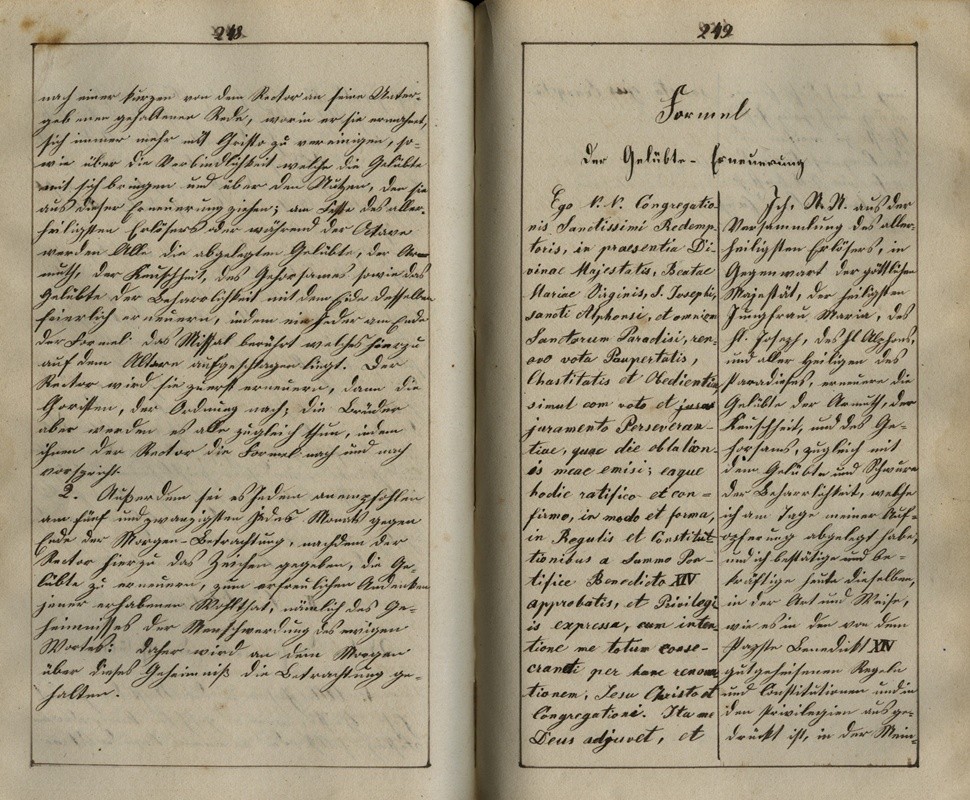 248
nach einer kurzen von dem Rector an seine Unter-
gebenen gehaltenen Rede, worin er sie ermahnet,
sich immer mehr mit Christo zu vereinigen, so-
wie über die Verbindlichkeit welche die Gelübte
mit sich bringen und über den Nutzen, den sie
aus dieser Erneuerung ziehen; am Feste des aller-
heiligsten Erlösers oder während der Octave
werden Alle die abgelegten Gelübte, der Ar-
muth, der Keuschheit, des Gehorsames sowie das
Gelübte der Beharrlichkeit mit dem Eide desselben
feierlich erneuern, indem ein Jeder am Ende
der Formel das Missal berührt welches hierzu
auf dem Altare aufgeschlagen liegt. Der
Rector wird sie zuerst erneuern, dann die
Choristen, der Ordnung nach; die Brüder
aber werden es alle zugleich thun, indem
ihnen der Rector die Formel nach und nach
vorspricht.
2. Außerdem sei es Jedem anempfohlen
am fünf und zwanzigsten jedes Monats gegen
Ende der Morgen-Betrachtung, nachdem der
Rector hierzu das Zeichen gegeben, die Ge-
lübte zu erneuern, zum erfreulichen Andenken
jener erhabenen Wohlthat, nämlich des Ge-
heimnisses der Menschwerdung des ewigen
Wortes. Daher wird an dem Morgen
über dieses Geheimniß die Betrachtung ge-
halten.
249
Formel
der Gelübte-Erneuerung
Ego N. N. Congregatio-
nis Sanctissimi Redemp-
toris, in praesentia Di-
vinae Majestatis, Beatae
Mariae Virginis, S. Josephi,
sancti Alphonsi, et omnium
Sanctorum Paradisi, ren-
ovo vota Paupertatis,
Chastitatis et Obedientiae
simul com voto et
juramento Perseveran-
tiae, quae die oblation-
is meae emisi; eaque
hodie ratifico et con-
firmo, in modo et forma,
in Regulis et Constitu-
tionibus a Summo Pon-
tifice Benedicto XIV
approbatis, et Privilegi-
is expressa, cum inten-
tione me totum conse-
crandi per hanc renova-
tionem, Jesu Christo et
Congregationi. Ita me
Deus adjuvet, et
Ich, N. N. aus der
Versammlung des aller-
heiligsten Erlösers, in
Gegenwart der göttlichen
Majestät, der heiligsten
Jungfrau Maria, des
hl. Joseph, des hl. Alphons,
und aller Heiligen des
Paradieses, erneuere die
Gelübte der Armuth, der
Keuschheit, und des Ge-
horsams, zugleich mit
dem Gelübte und Schwure
der Beharrlichkeit, welche
ich am Tage meiner Auf-
opferung abgelegt habe,
und ich bestätige und be-
kräftige heute dieselben,
in der Art und Weise,
wie es in den von dem
Papste Benedikt XIV
gutgeheisenen Regeln
und Constitutionen und in
den Privilegien ausge-
drückt ist, in der Mein-